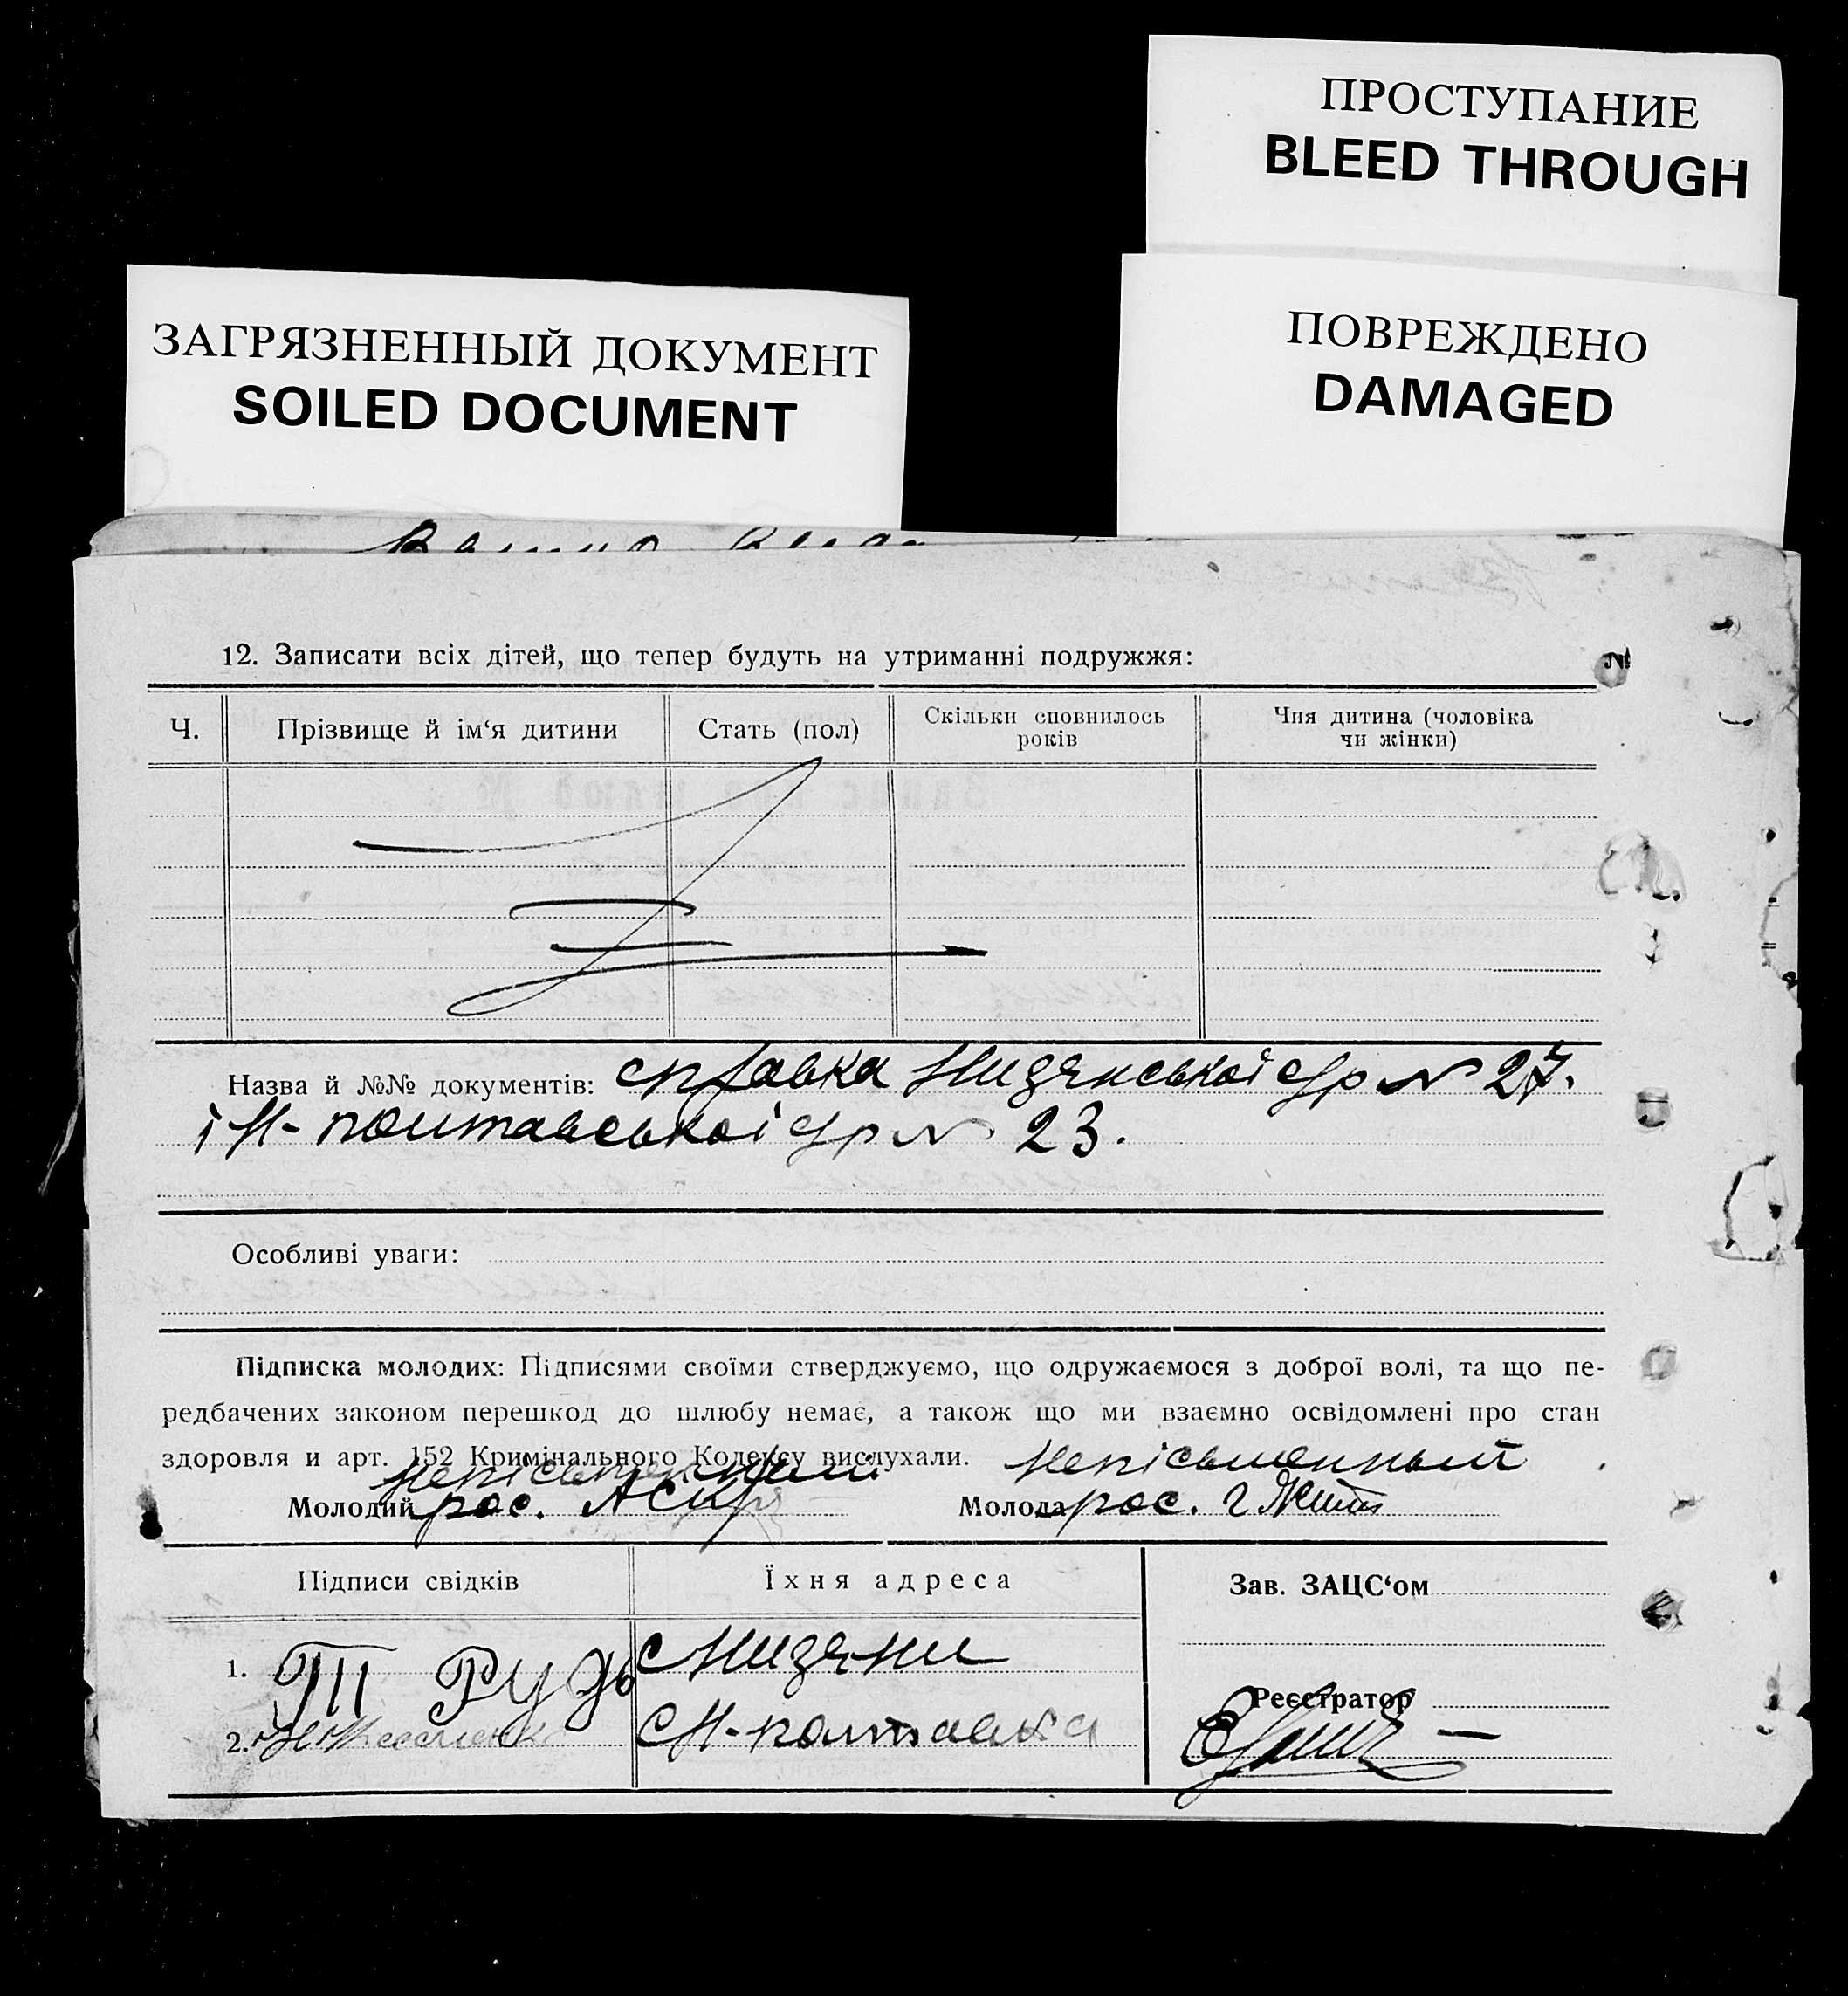 ПРОСТУПАНИЕ
BLEED THROUGH
ЗАГРЯЗНЕННЫЙ ДОКУМЕНТ
SOILED DOCUMENT
ПОВРЕЖДЕНО
DAMAGED
12. Записати всіх дітей, що тепер будуть на утриманні подружжя:
Ч. Прізвище й ім‘я дитини Стать (пол) Скільки сповнилось років Чия дитина (чоловіка чи жінки)
Назва й №№ документів: справка Низянської с/р № 27.
і Н-полтавської с/р № 23.
Особливі уваги:
Підписка молодих: Підписями своїми стверджуємо, що одружаємося з доброї волі, та що пе-
редбачених законом перешкод до шлюбу немає, а також що ми взаємно освідомлені про стан
здоровля и арт. 152 Кримінального Кодексу вислухали.
непісьменный
Молодий рос. Молода рос.
Підписи свідків Їхня адреса Зав. ЗАЦС‘ом
1. Т РУДЬ с Низяни
Реєстратор
2. с Н-полтавка